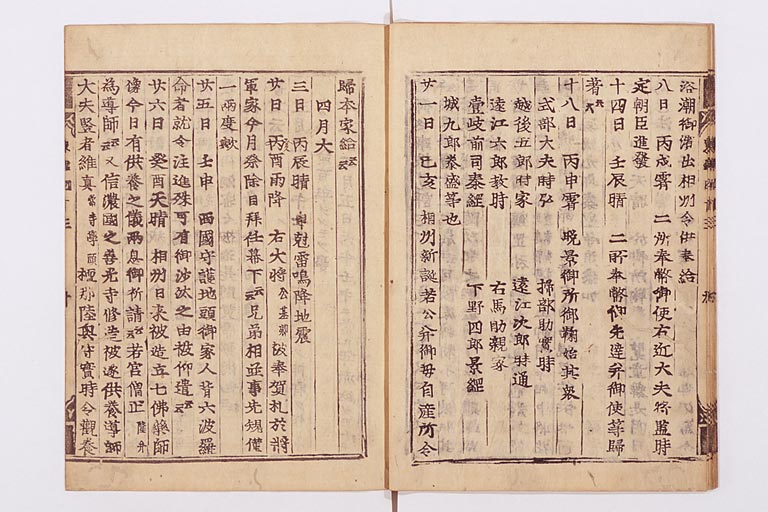 浴潮御濱出相州令供奉給
八日 丙戌霽 二所奉幣御使右近大夫將監時
定朝臣進發
十四日 壬辰晴 二所奉幣御先達并御使等歸
著云云
十八日 丙申霽 晚景御所御鞠始其衆
式部大夫時弘 掃部助實時
越後五郎時家 遠江次郎時通
遠江六郎教時 右馬助親家
壹岐前司泰綱 下野四郎景經
城九郎泰盛等也
廿一日 己亥 相州新誕若公并御母自産所令
歸本家給云云
四月大
三日 丙辰晴 午剋雷鳴降地震
廿日 丙酉雨降 右大將公基卿 被奉賀札於將
軍家今月祭除日拜任幕下云云兄弟相並事先規僅
一兩度歟
廿五日 壬申 西國守護地頭御家人背六波羅
命者就令注進殊可有御沙汰之由被仰遣云云
廿六日 癸酉天晴 相州日來被造立七佛藥師
像今日有供養之儀兩息御祈請云云若宮僧正隆弁
為導師云云又信濃國之善光寺修造被遂供養導師
大夫賢者維真當寺學頭 陸奧守實時令觀養